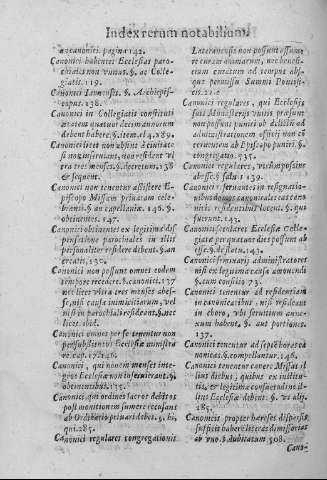 Index rerum notabilium.
an canonici. pagina 142.
Canonici habentes Ecclesias paro-
chiales non vnitas. §. ac Colle-
giatis. 119.
Canonici Ianuensis. §. Archiepis-
copus. 138.
Canonici in Collegiatis constituti
ætatem quatuordecim annorum
debent habere. §. item. el 4. 289.
Canonici licet non absint è ciuitate
si non inseruiant, non resident vl
tra tres menses. §. decernens. 138
& sequent.
Canonici non tenentur assistere E-
piscopo Missam priuatam cele-
branti. §. an capellanis. 146. §.
obtinentes. 147.
Canonici obtinentes ex legitima dis
pensatione parochiales in illis
personaliter residere debent. §. an
creatis, 130.
Canonici non possunt omnes eodem
tempore recedere. §. canonici. 137
nec licet vltra tres menses abes-
se, nisi causa inimicitiarum, vel
nisi in parochiali resideant. §. nec
licet. ibid.
Canonici omnes per se tenentur non
per substitutos Ecclesiæ ministra
re cap. 12. 146.
Canonici, qui non in menses inte-
gros Ecclesiæ non inseruierunt. §.
obtinentibus. 135.
Canonici qui ordines sacros debitos
post monitionem sumere recusant
ab Ordinario priuari debet. §. hi,
qui. 285.
Canonici regulares congregationis
Lateranensis non possunt assume
re curam animarum, nec benefi-
cium curatum ad tempus abs-
que permissu Summi Pontifi-
cis.
Canonici regulares, qui Ecclesiis
suis Monasterijs vnitis præsunt
non possunt puniri ob delicta ad
administrationem officij non co
mittentem ab Episcopo puniri. §.
congregatio. 535.
Canonici regulares,
abesse. §. salus 139.
Canonici
bus
nicis residentibus locent. §. qui
fuerint. 143.
Canonici sæculares Ecclesiæ Colle-
giatæ per quatuor dies possunt ab
esse. §. de statu. 141.
Canonici seminarij administratores
nisi ex legitima causa amouendi
§. cum consilio 73.
Canonici tenentur ad residentiam
in canonicatibus, nisi resideant
in choro, vbi seruitium anne-
xum habent. §. aut portiones.
137.
Canonici tenentur ad septem horas ca
nonicas. §. compellantur. 146.
Canonici tenentur canere Missas il
lius diebus, quibus ex institu-
tis, & legitima consuetudine il-
lius Ecclesiæ debent. §. vt alij.
285.
Canonicis propter hæreses dispensis
sufficit habere literas dimissorias
ab vno. §. dubitatum 508.
Cano-